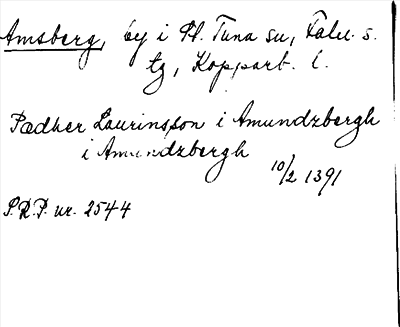 Amsberg, by i St. Tuna sn, Falu s.
tg, Kopparb. l.
Pædher Laurinsson i Amundzbergh
i Amundzbergh
10/2 1391
S.R.P. nr. 2544